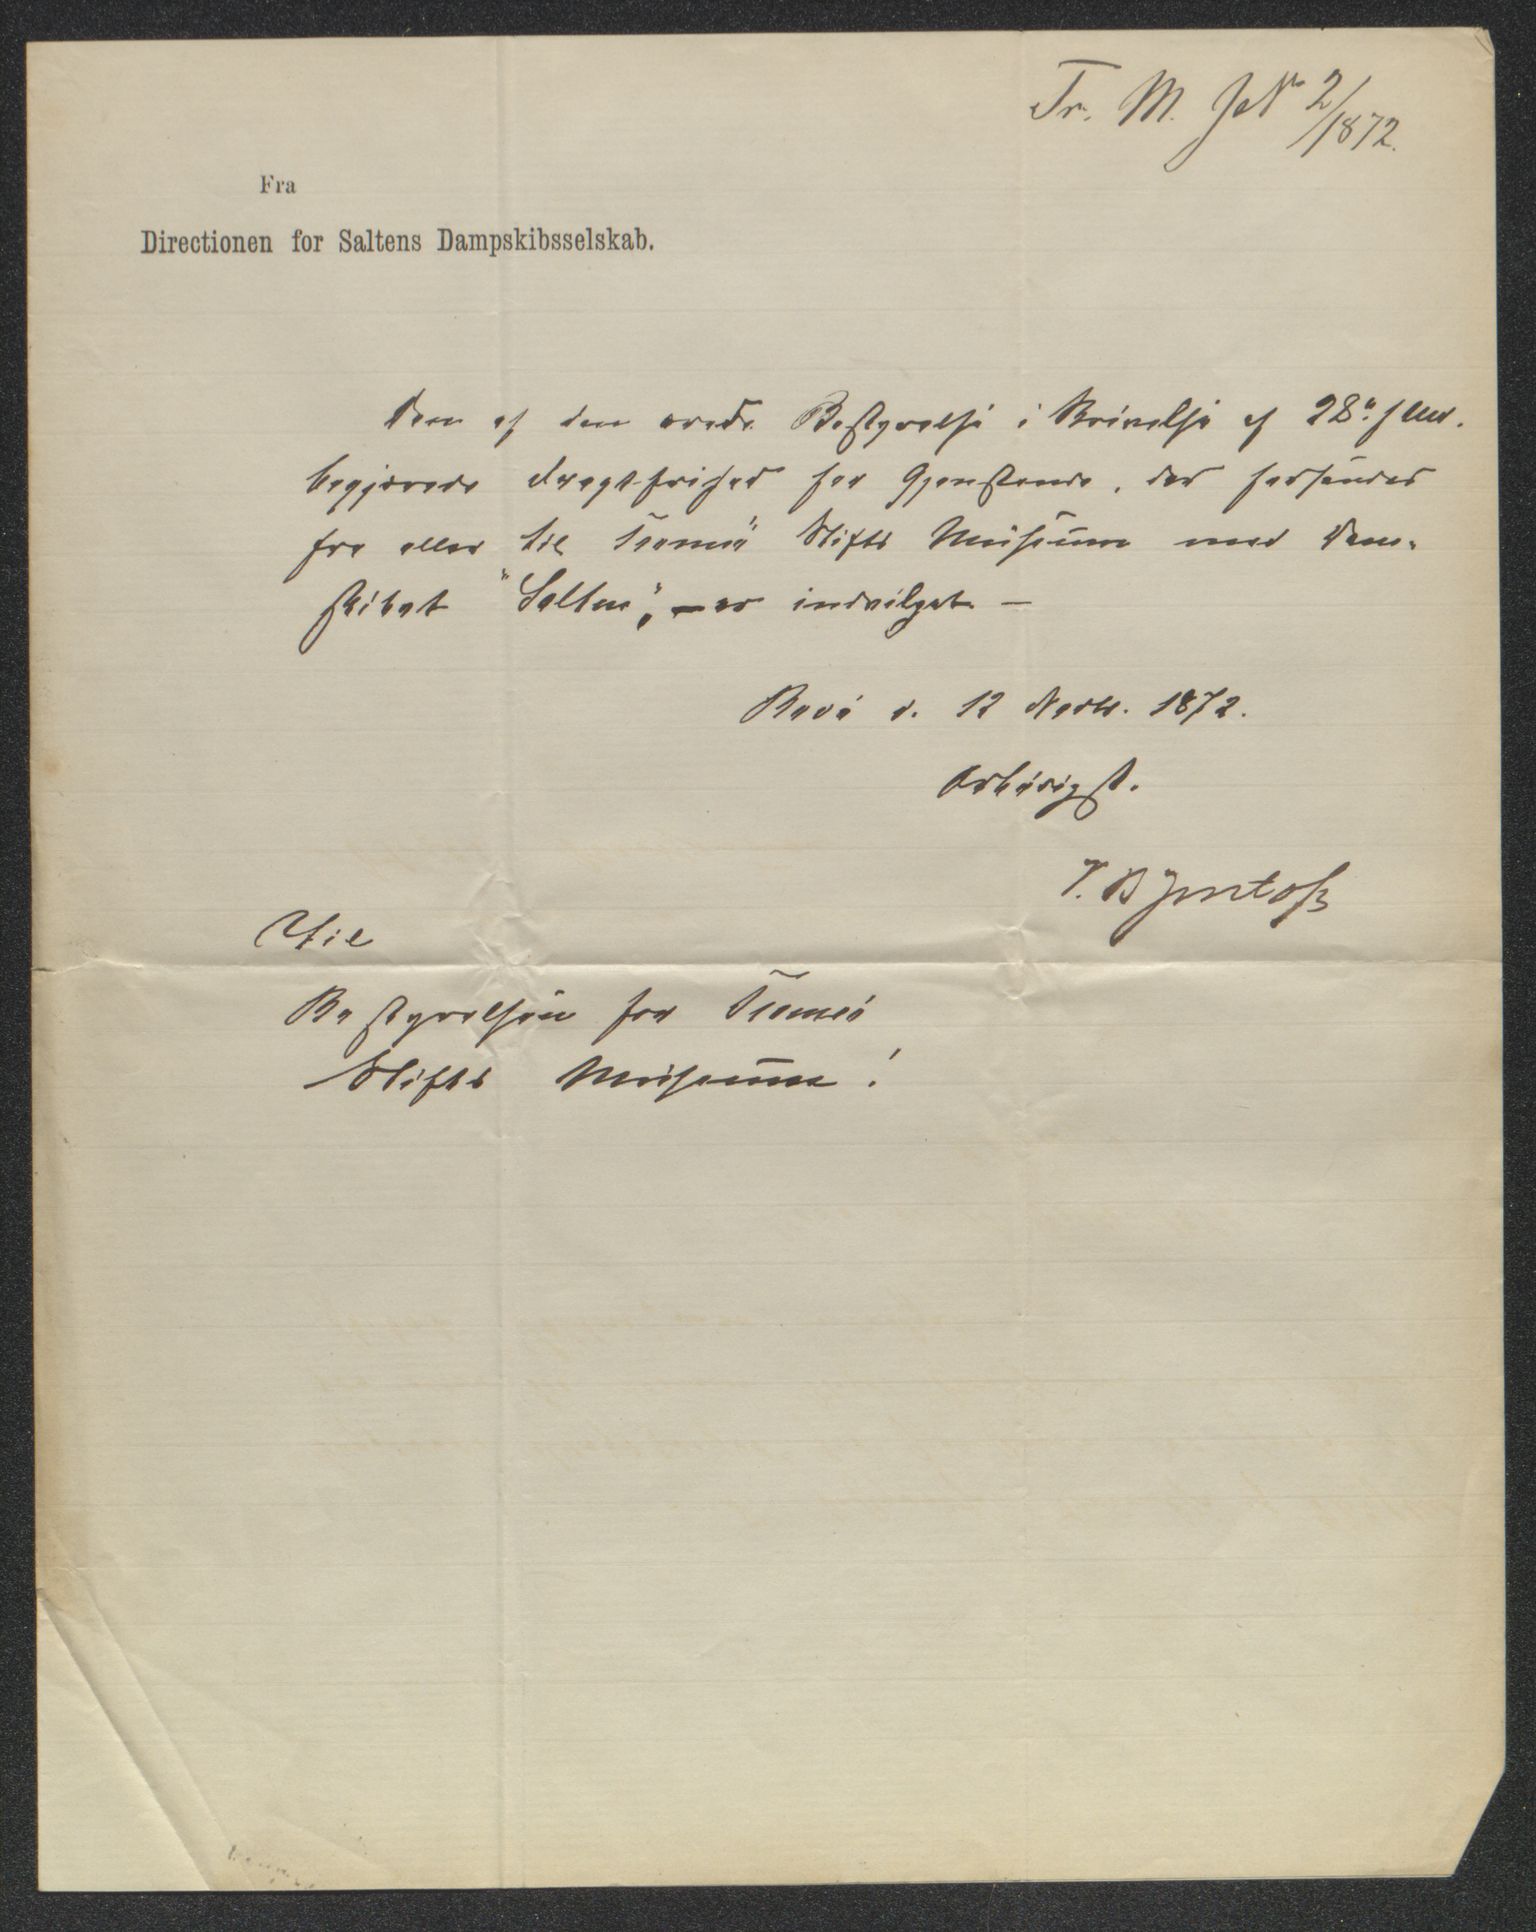 Tr. M. J№ 2/1872.
Fra
Directionen for Saltens Dampskibsselskab.
Den af den ærede Bestyrelse i Skrivelse af 28de f. Md.
begjærede Fragtfrihed for Gjenstande, der forsendes
fra eller til Tromsö Stifts Museum med Dam-
skibet "Salten", – er indvilget. –
Bodö d. 12 Novbr. 1872.
Ærbödigst.
J. B Jentoft
Til
Bestyrelsen for Tromsö
Stifts Museum!